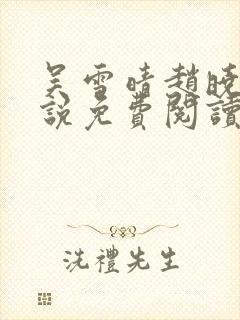 吴雪晴趙曉
說免費閱讀
洗禮先生